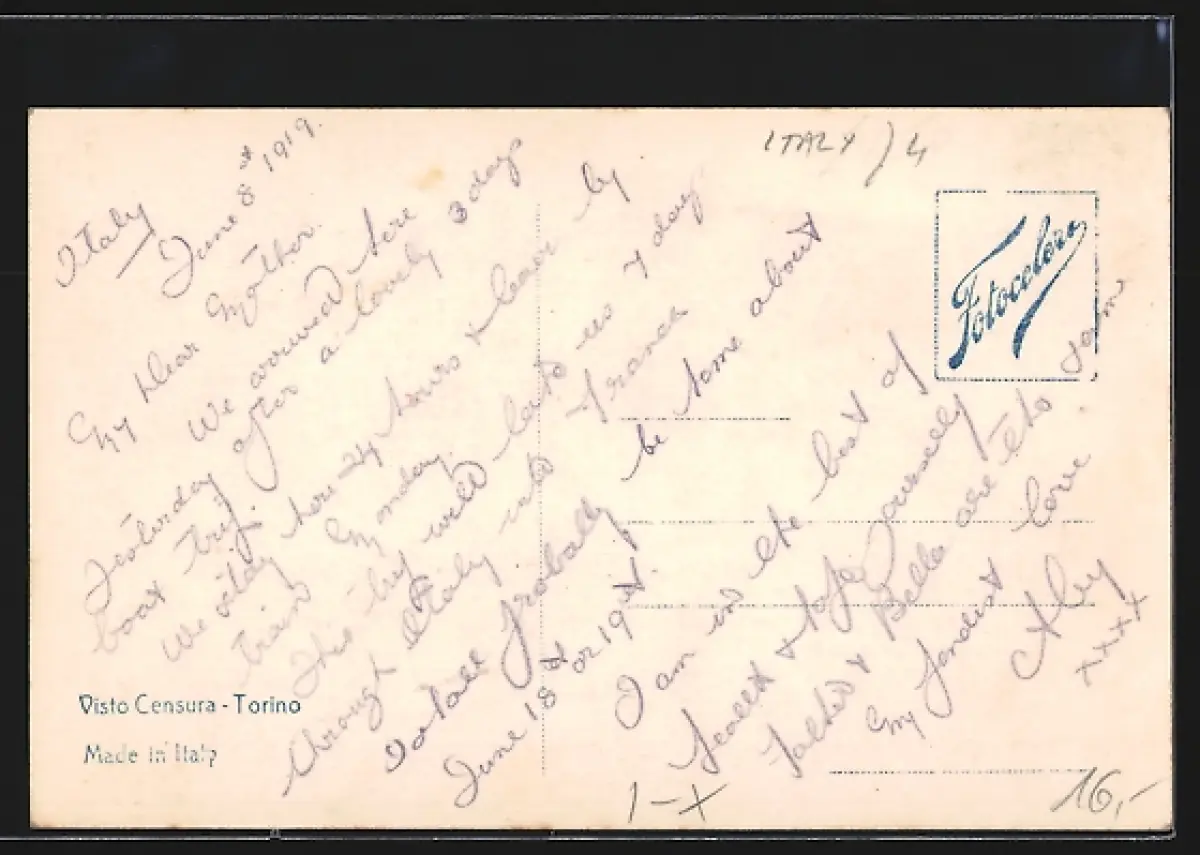 ITALY / 4
Italy
June 8th 1919.
My Dear Mother.
We arrived here
yesterday after a lovely 3 days
boat trip.
We stay here 24 hours & leave by
train Monday.
This trip will take us 7 days
through Italy into France
I shall probally be home about
June 18th or 19th.
I am in the best of
health & hope yourself
Father & Bella are the same
My fondest love
xxxx
Fotocelere
Visto Censura - Torino
Made in Italy
1-X
16,-